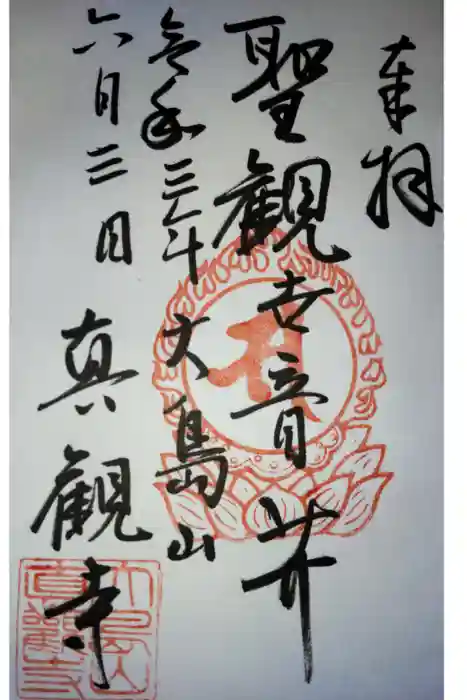 奉拝
聖観世音𦬇
令和三年
六月三日
大島山
真観寺